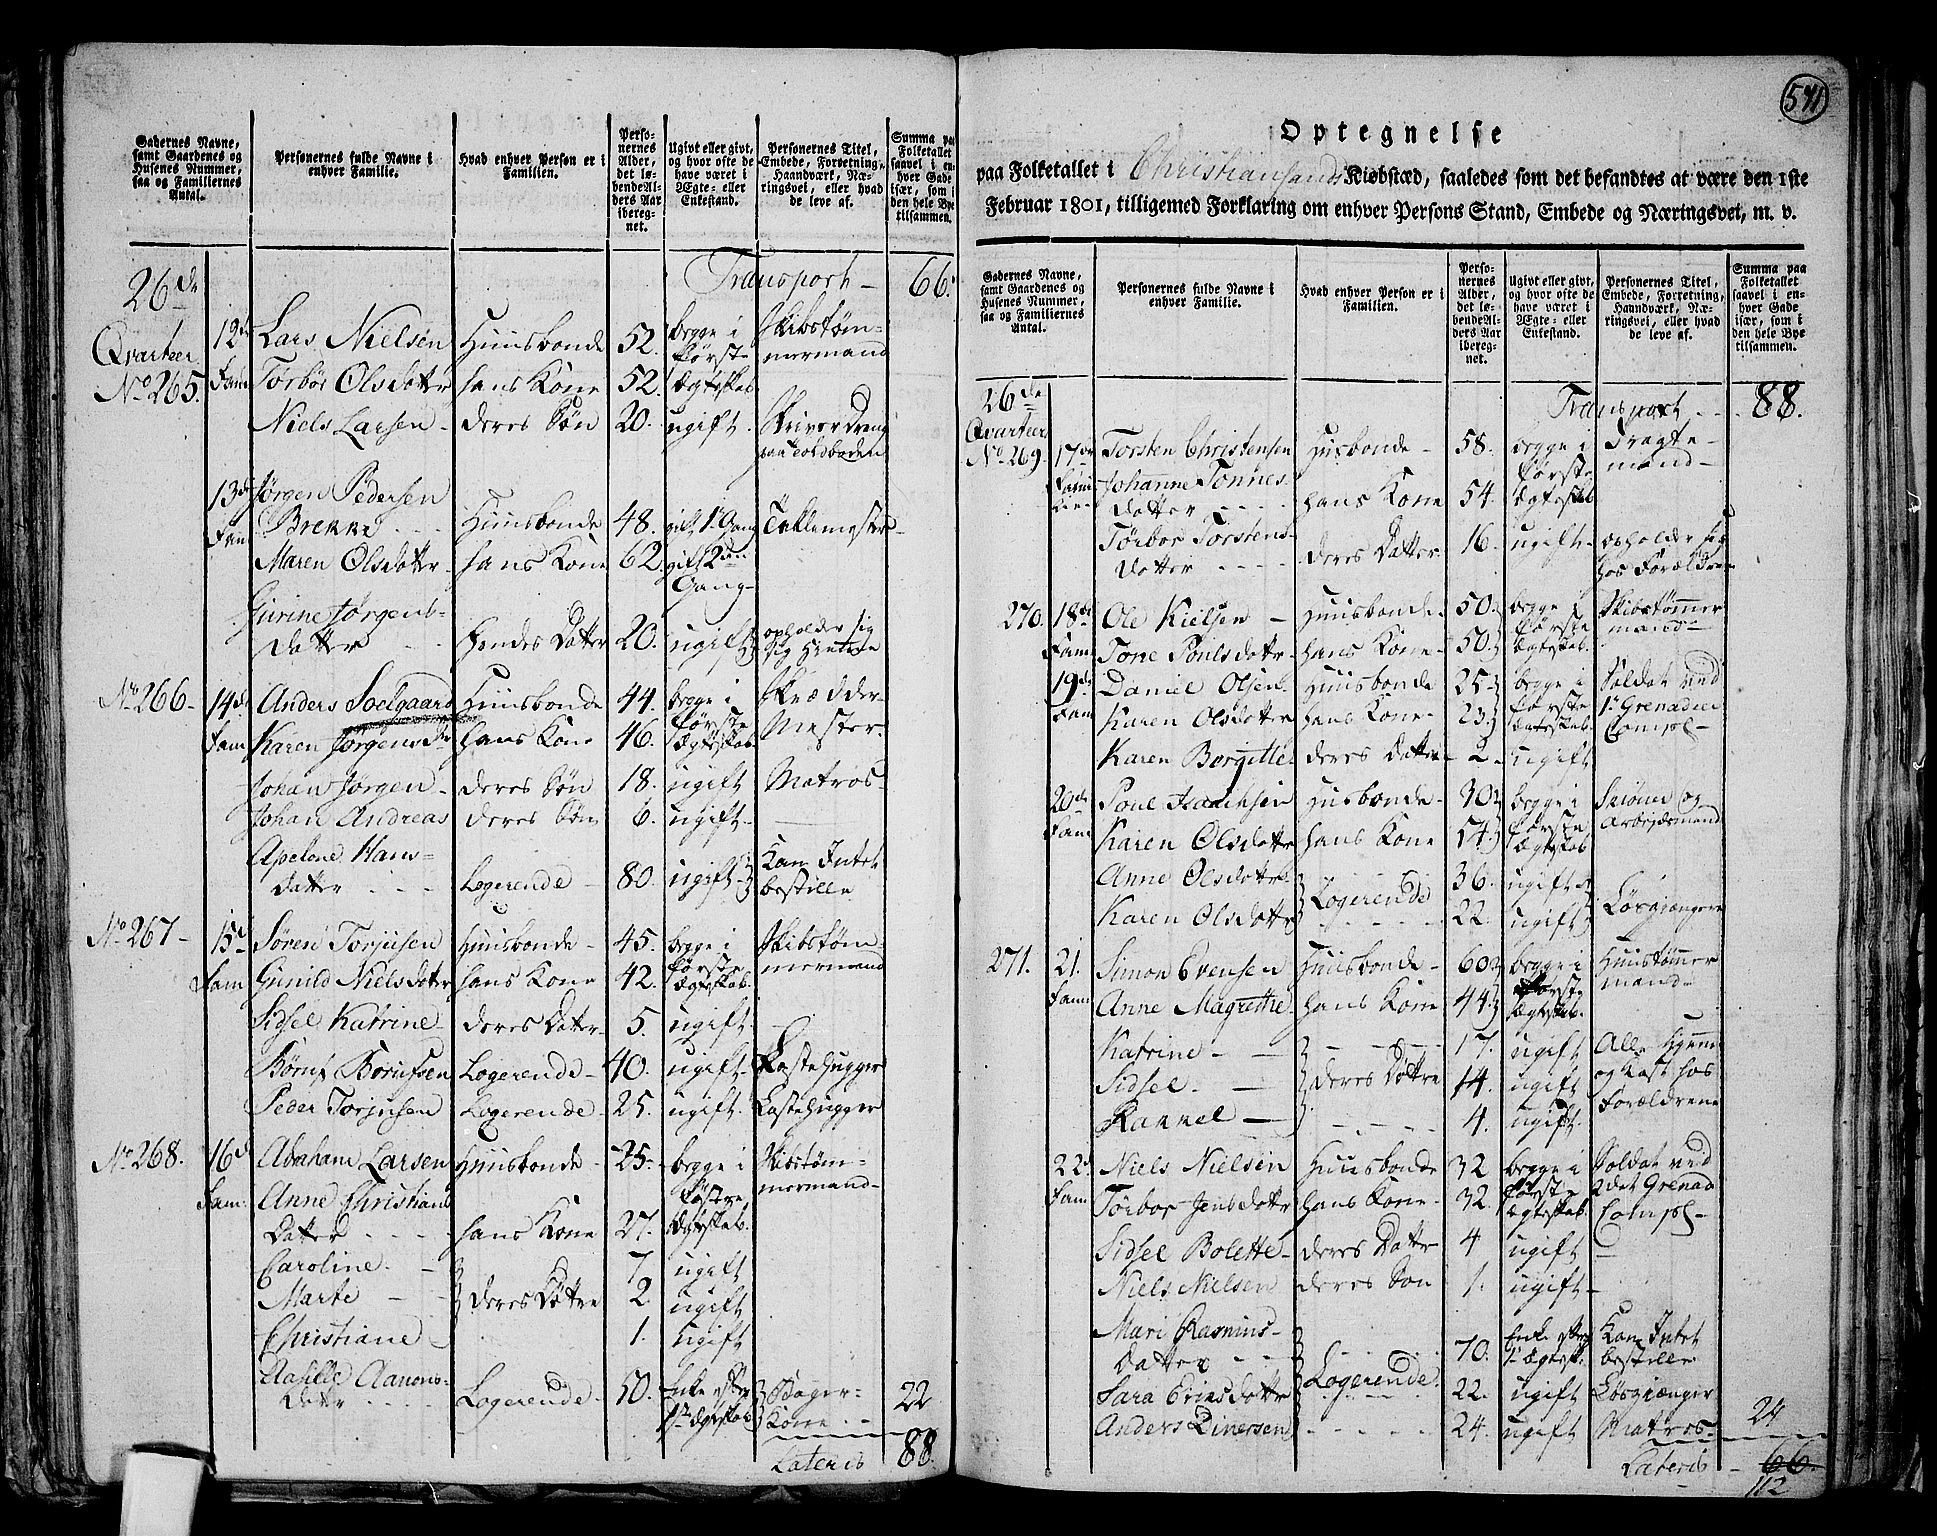 Gadernes Navne, samt Gaardenes og Husenes Nummer, saa og Familiernes Antal.
Personernes fulde Navne i enhver Familie.
Hvad enhver Person er i Familien.
Personernes Alder, det løbende Alders Aar iberegnet.
Ugivt eller givt, og hvor ofte de have været i Ægte- eller Enkestand.
Personernes Titel, Embede, Forretning, Haandværk, Næringsvei, eller hvad de leve af.
Summa paa Folketallet saavel i enhver Gade især, som i den hele Bye tilsammen.
Transport — 66.
26de Qvarteer
No 265. 12te Fam Lars Nielsen Huusbonde 52. begge i første Ægteskab Skibstømmermand
Torbor Olsdatter hans Kone 52.
Niels Larsen deres Søn 20. ugift Skriver Dreng paa Toldboden
13de Fam Jørgen Pedersen Brekke Huusbonde 48. gift 1ste Gang Taklemester
Maren Olsdatter hans Kone 62. gift 2den Gang
Gurine Jørgensdatter Hendes Datter 20. ugift opholder sig
No 266 14de Fam Anders Soelgaard Huusbonde 44. begge i første Ægteskab Skrædder Mester
Karen Jørgensdr hans Kone 46.
Johan Jørgen deres Søn 18. ugift Matros
Johan Andreas deres Søn 6. ugift
Apelone Hansdatter Logerende 80. ugift Kan Intet bestille
No 267 15d Fam Søren Torjusen Huusbonde 45. begge i første Ægteskab Skibstømmermand
Gunild Nielsdatter hans Kone 42.
Sidsel Katrine deres Datter 5. ugift
Børuf Børufsen Logerende 40. ugift Lastehugger
Peder Torjusen Logerende 25. ugift Lastehugger
No 268. 16d Fam Abraham Larsen Huusbonde 25. begge i første Ægteskab Skibstømmermand
Anne Christians Datter hans Kone 27.
Caroline deres Døtre 7 ugift
Marte 2 ugift
Christiane 1. ugift
Aasille Aanons Datter Logerende 50. Enke efter 1te Ægteskab Bager Kone
22
Lateris 88.
541
Optegnelse
paa Folketallet i Christiansands Kiøbstæd, saaledes som det befandtes at være den 1ste
Februar 1801, tilligemed Forklaring om enhver Persons Stand, Embede og Næringsvei, m. v.
Gadernes Navne, samt Gaardenes og Husenes Nummer, saa og Familiernes Antal.
Personernes fulde Navne i enhver Familie.
Hvad enhver Person er i Familien.
Personernes Alder, det løbende Alders Aar iberegnet.
Ugivt eller givt, og hvor ofte de have været i Ægte- eller Enkestand.
Personernes Titel, Embede, Forretning, Haandværk, Næringsvei, eller hvad de leve af.
Summa paa Folketallet saavel i enhver Gade især, som i den hele Bye tilsammen.
Transport 88.
26de Qvarteer
No 269. 17de Familie Torsten Christensen Husbonde 58. begge i første Ægteskab Dragtemand
Johanne Tonnes datter hans Kone 54.
Torbor Torstens datter deres Datter 16. ugift opholder sig hos Forældrene
270. 18de Fam Ole Kielsen Huusbonde 50. begge i første Ægteskab Skibstømmermand
Tone Poulsdatr hans Kone 50.
19de Fam Daniel Olsen Huusbonde 25 begge i første Ægteskab Soldat ved 1te Grenadier Compg
Karen Olsdatter hans Kone 23.
Karen Borgitte deres Datter 2 ugift
20de Fam Poul Isachsen Husbonde 30 begge i første Ægteskab og Arbeidsmand
Karen Olsdatter hans Kone 54.
Anne Olsdatter Logerende 36. ugift Løsgiængere
Karen Olsdatter 22. ugift
271. 21. Fam Simon Evensen Huusbonde 60 begge i første Ægteskab Huustømmermand
Anne Magrethe hans Kone 44
Katrine deres Døtre 17. ugift Alle hiemme og hos Forældrene
Sidsel 14. ugift
Rakkel 4. ugift
22d Fam Niels Nielsen Huusbonde 32 begge i første Ægteskab Soldat ved 2det Grenad Compg
Torbor Jensdatter hans Kone 32.
Sidsel Bolette deres Datter 4 ugift
Niels Nielsen deres Søn 1. ugift
Mari Rasmus Datter Logerende 70. Enke efter 1te Ægtesk. Kan Intet bestille
Sara Eriksdatter 22. ugift Løsgiænger
Anders Einersen 24. ugift Matros
24
Lateris 66.
112